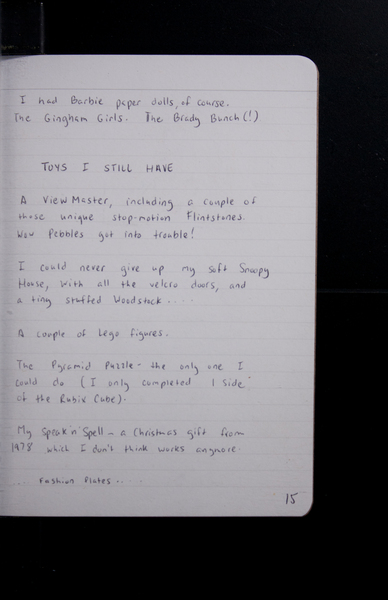 I had Barbie paper dolls, of course.
The Gingham Girls. The Brady Bunch (!)
TOYS I STILL HAVE
A View Master, including a couple of
those unique stop-motion Flintstones.
Wow Pebbles got into trouble!
I could never give up my soft Snoopy
House, with all the velcro doors, and
a tiny stuffed Woodstock....
A couple of Lego figures.
The Pyramid Puzzle - the only one I
could do (I only completed 1 side
of the Rubix Cube).
My Speak 'n' Spell - a Christmas gift from
1978 which I don't think works anymore.
Fashion Plates....
15